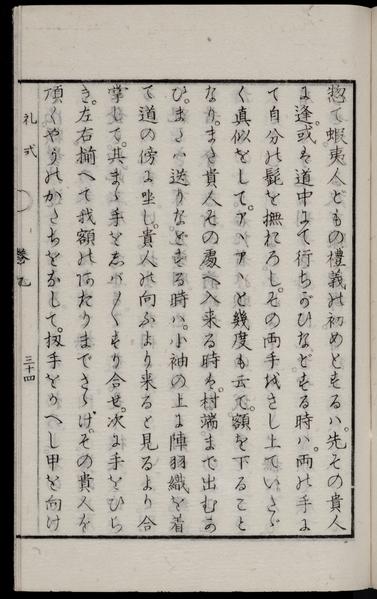 惣て蝦夷人どもの禮義の初めとするハ。先その貴人
に逢。或は道中にて行ちがひなどする時ハ。両の手に
て自分の髭を撫おろし。その両手をさし上ていたゞ
く真似をして。アヽアヽと幾度も云て。額を下ること
なり。また貴人その處へ入来る時は。村端まで出むか
ひ。または送りなどする時ハ。小袖の上に陣羽織を着
て道の傍に坐し。貴人の向ふより来ると見るより合
掌して。其まゝ手をしバらくすり合せ。次に手をひら
き。左右揃へて我額のあたりまでさゝげ。その貴人を
頂くやうのかたちをなして。扨手をかへし甲を向け
礼式
巻九
三十四